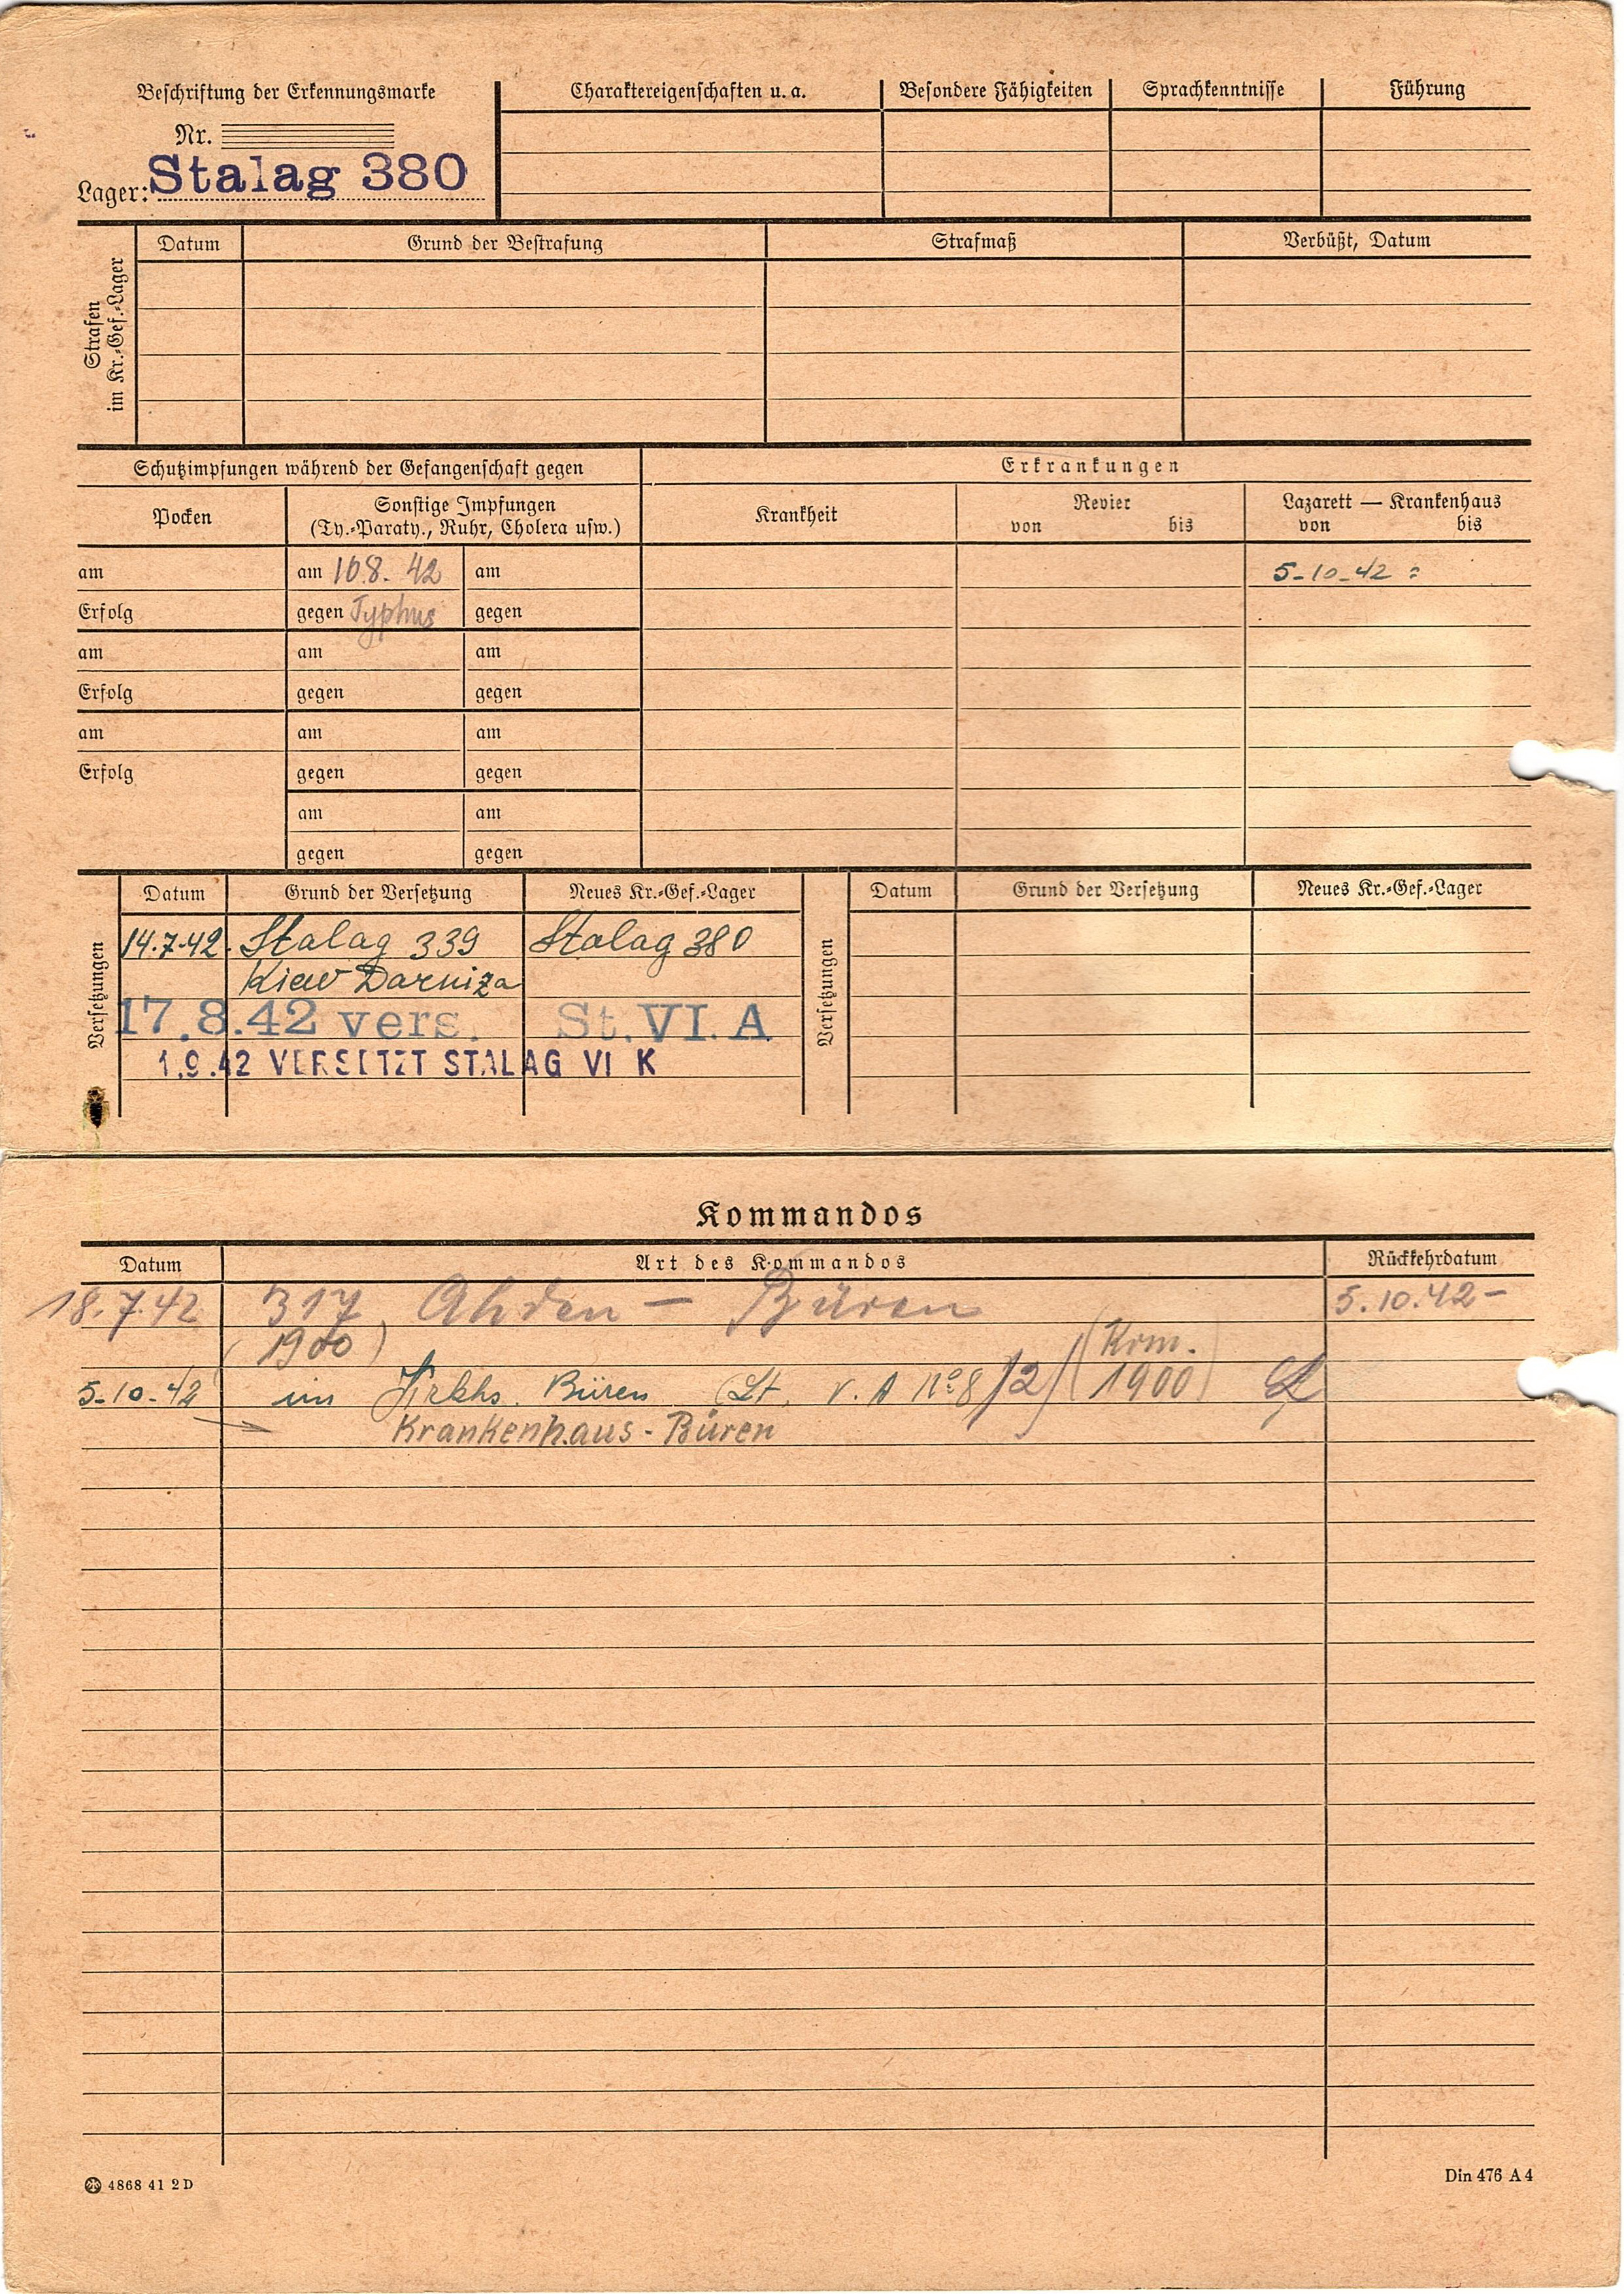 Beschriftung der Erkennungsmarke
Nr.
Lager: Stalag 380
Charaktereigenschaften u. a.
Besondere Fähigkeiten
Sprachkenntnisse
Führung
Strafen
im Kr.-Gef.-Lager
Datum
Grund der Bestrafung
Strafmaß
Verbüßt, Datum
Schutzimpfungen während der Gefangenschaft gegen
Erkrankungen
Pocken
Sonstige Impfungen
(Ty.-Paraty., Ruhr, Cholera usw.)
Krankheit
Revier
von bis
Lazarett — Krankenhaus
von bis
am
am 10.8. 42
am
5-10-42
Erfolg
gegen Typhus
gegen
am
am
am
Erfolg
gegen
gegen
am
am
am
Erfolg
gegen
gegen
am
am
gegen
gegen
Versetzungen
Datum
Grund der Versetzung
Neues Kr.-Gef.-Lager
14.7.42. Stalag 339 Stalag 380
Kiew Darniza
17.8.42 vers. St. VI. A
1.9.42 VERSETZT STALAG VI K
Versetzungen
Datum
Grund der Versetzung
Neues Kr.-Gef.-Lager
Kommandos
Datum
Art des Kommandos
Rückkehrdatum
18.7.42 317 Ahden — Büren 5.10.42 –
(1900) (Kom.
5-10-42 im Krkhs. Büren (Lt. V. A No 8/2) 1900)
Krankenhaus - Büren
4868 41 2 D
Din 476 A 4